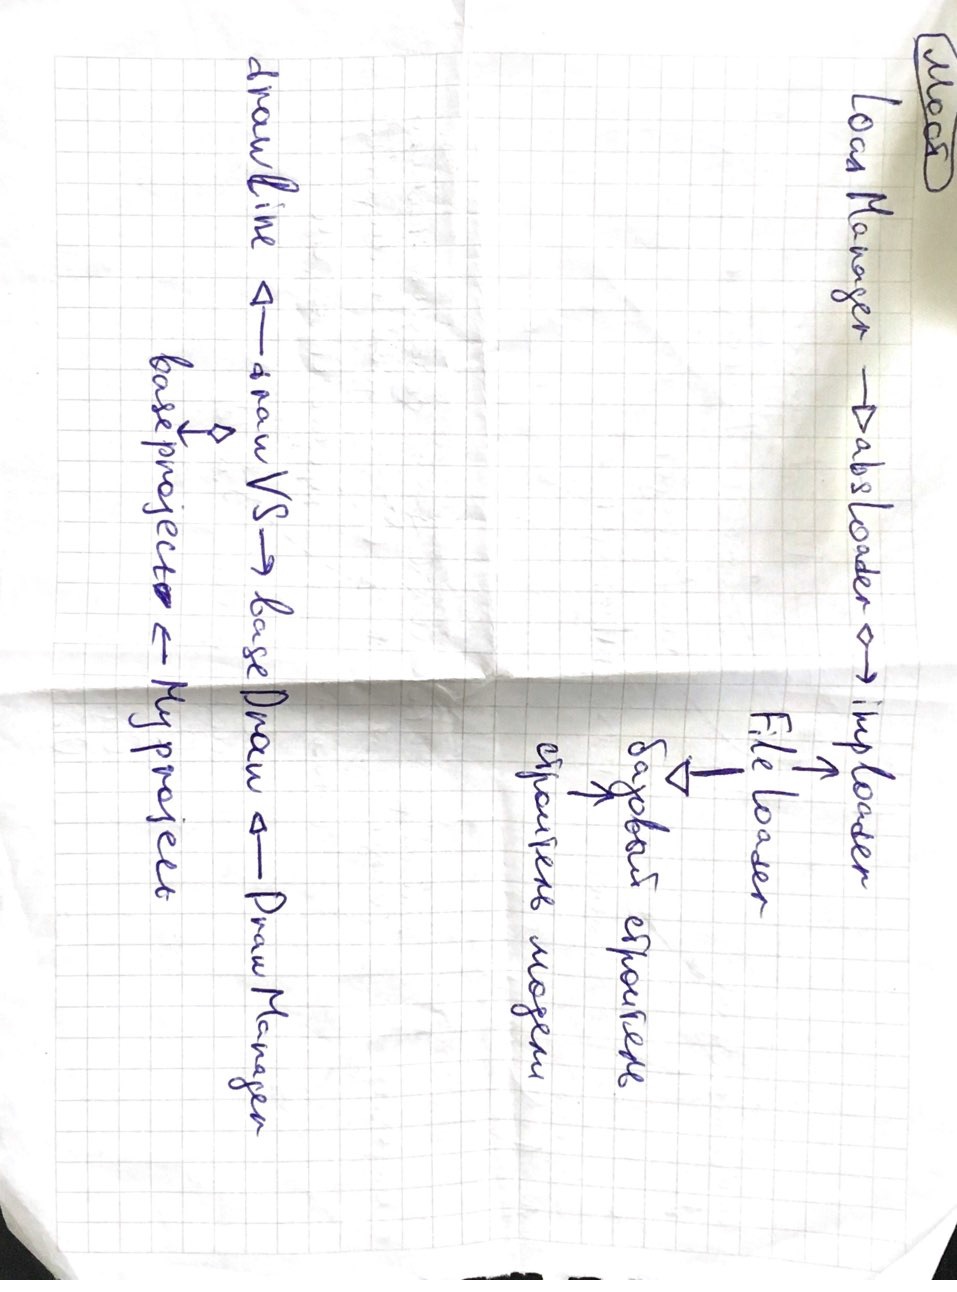 Мост
Load Manager absLoader imploader
File loader
базовый строитель
строитель модели
drawLine drawVS baseDraw DrawManager
baseproject My project